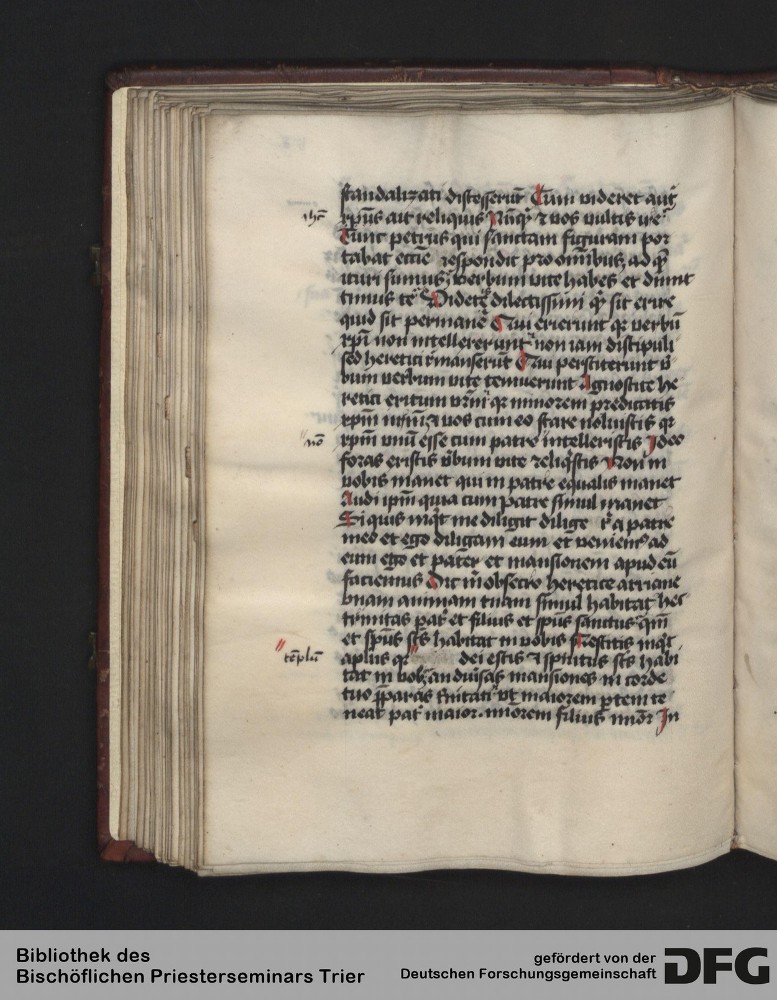 scandalizati discesserunt Cum videret aut
xpus ait reliquis Nuqd et vos vultis ire
ihc
Tunc petrus qui sanctam figuram por
tabat eccie respondit pro omnibus ad que
ituri sumus verbum vite habes et dimit
timus te Videte dilectissimi qd sit exire
quid sit permane Qui exierunt qr verbu
xpi non intellexerunt non iam discipuli
sed heretici remanserut Qui perstiterunt
bum verbum vite tenuerunt Agnoscite he
retici exitum vrm qr minorem predicatis
xpm vos cum eo stare noluistis qr
xpm unu esse cum patre intellexistis Ideo
no
foras existis vbum vite reliqstis Non in
vobis manet qui in patre equalis manet
Audi ipm quia cum patre simul manet
Si quis inqt me diligit dilige a patre
meo et ego diligam eum et veniem ad
eum ego et pater et mansionem apud eu
faciemus Dic m obsecro heretice arriane
bnam animam tuam simul habitat hec
trinitas pat et filius et spus sanctus qm
et spus scs habitat in vobis estis inqt
aplus qr dei estis et spiritus scs habi
templu
tat in vob an divisas mansiones in corde
tuo pparas trinitati ut maiorem ptem te
neat pat maior minorem filius minor In
Bibliothek des
Bischöflichen Priesterseminars Trier
gefördert von der
Deutschen Forschungsgemeinschaft
DFG